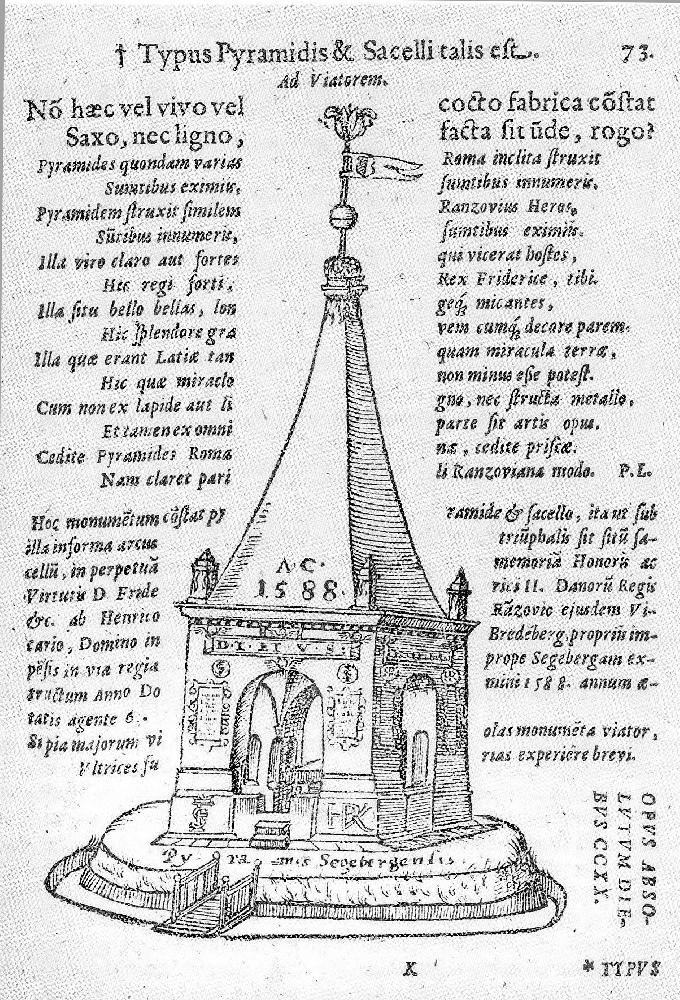 † Typus Pyramidis & Sacelli talis est. 73.
Ad Viatorem.
Nõ hæc vel vivo vel cocto fabrica cõstat
Saxo, nec ligno, facta sit ũde, rogo?
Pyramides quondam varias Roma inclita struxit
Sumtibus eximiis, sumtibus innumeris.
Pyramidem struxit similem Ranzovius Heros,
Sũtibus innumeris, sumtibus eximiis.
Illa viro claro aut fortes qui vicerat hostes,
Hec regi forti, Rex Friderice, tibi.
Illa situ bello bellas, lon geq́; micantes,
Hic splendore gra vem cumq́; decore parem.
Illa quæ erant Latiæ tan quam miracula terræ,
Hic quæ miraclo non minus esse potest.
Cum non ex lapide aut li gno, nec structa metallo,
Et tamen ex omni parte sit artis opus.
Cedite Pyramides Roma næ, cedite priscæ.
Nam claret pari li Ranzoviana modo. P.L.
Hoc monumẽtum cõstat py ramide & sacello, ita ut sub
illa in forma arcus triũphalis sit sitũ sa-
cellũ, in perpetuã memoriã Honoris ac
Virtutis D. Fride rici II. Danorũ Regis
&c. ab Henrico Rãzovio ejusdem Vi-
cario, Domino in Bredẽberg, propriis im-
pẽsis in via regia prope Segebergam ex-
tructum Anno Do mini 1588. annum æ-
tatis agente 6..
Si pia majorum vi olas monumẽta viator,
Ultrices fu rias experiẽre brevi.
A.C.
1588.
DIVVS
HRK
Py ra mis Segebergensis
OPVS ABSO-
LVTVM DIE-
BVS CCXX.
X
* TYPVS